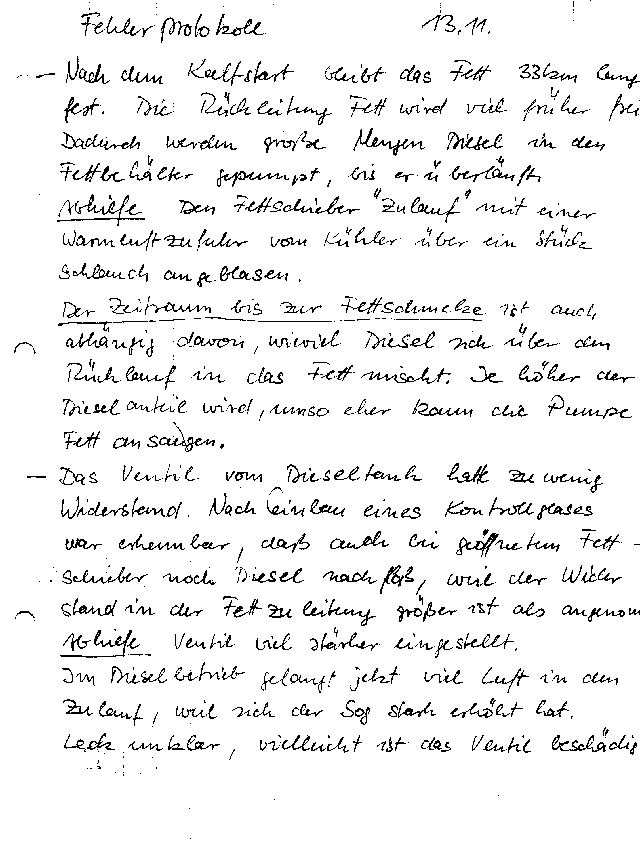 Fehlerprotokoll 13.11.
– Nach dem Kaltstart bleibt das Fett 33km lang
fest. Die Rückleitung Fett wird viel früher frei
Dadurch werden große Mengen Diesel in den
Fettbehälter gepumpt, bis er überläuft.
Abhilfe Den Fettschieber "Zulauf" mit einer
Warmluftzufuhr vom Kühler über ein Stück
Schlauch angeblasen.
Der Zeitraum bis zur Fettschmelze ist auch
abhängig davon, wieviel Diesel sich über den
Rücklauf in das Fett mischt. Je höher der
Dieselanteil wird, umso eher kann die Pumpe
Fett ansaugen.
– Das Ventil vom Dieseltank hatte zu wenig
Widerstand. Nach Einbau eines Kontrollglases
war erkennbar, daß auch bei geöffnetem Fett-
schieber noch Diesel nachfloß, weil der Wider
stand in der Fettzuleitung größer ist als angenom
Abhilfe Ventil viel stärker eingestellt.
Im Dieselbetrieb gelangt jetzt viel Luft in den
Zulauf, weil sich der Sog stark erhöht hat.
Leck unklar, vielleicht ist das Ventil beschädig